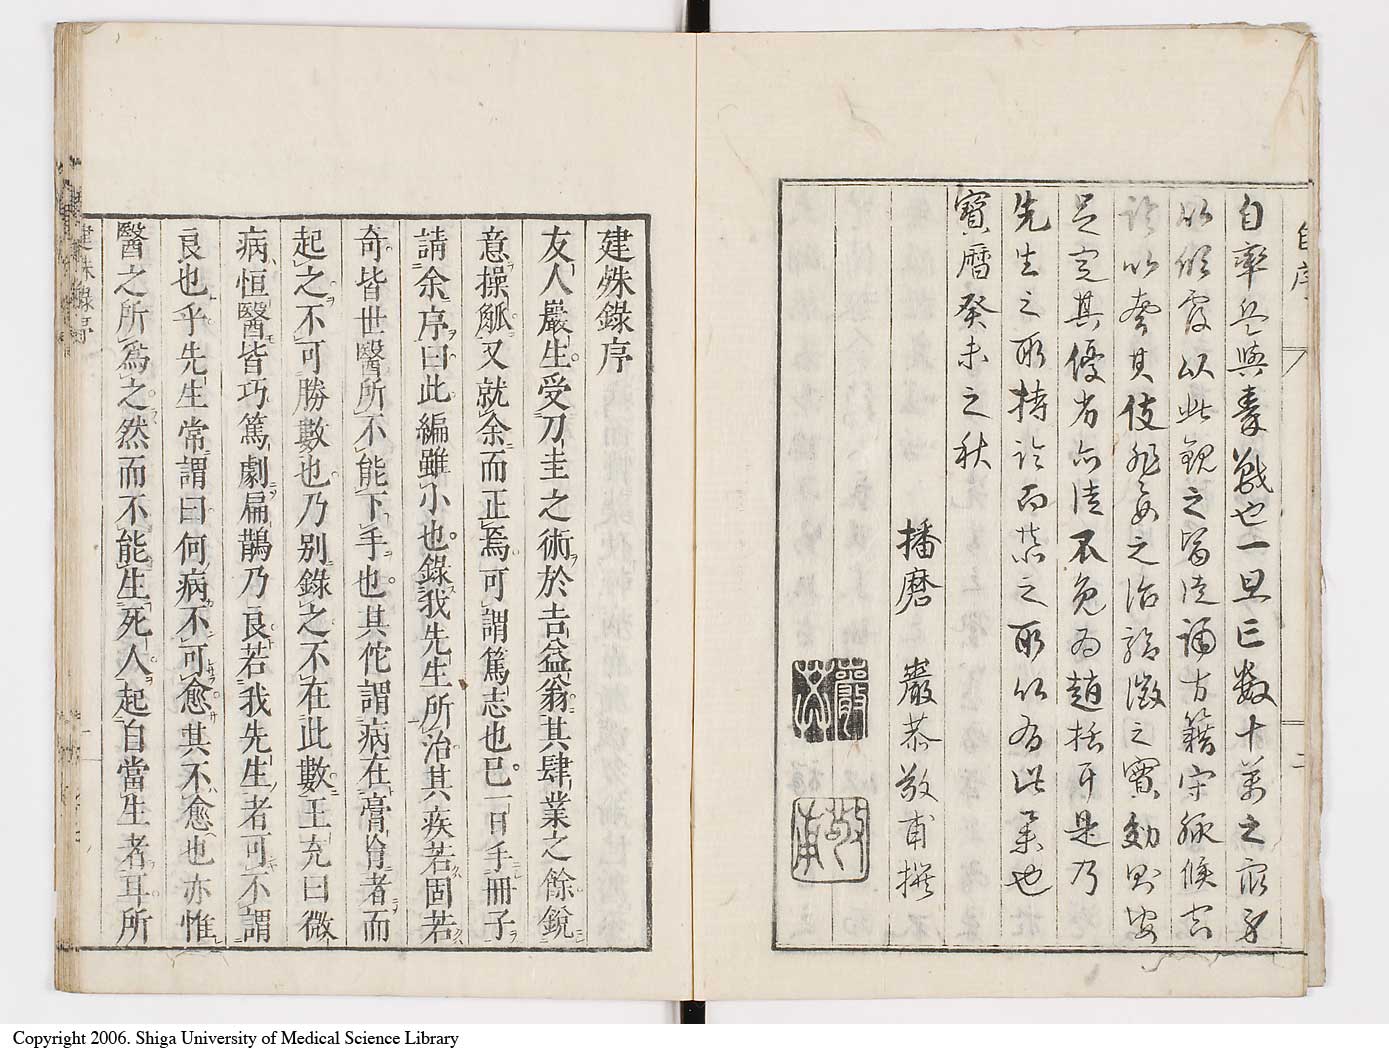 自序
自率兵與秦戰也一旦亡數十萬之衆身
以此觀之皆徒誦方籍守脉候
其伎
足定其優者亦徒不免為趙括耳是乃
先生之所持論而某之所以為此業也
寶曆癸未之秋
播磨 巖恭敬甫撰
建殊錄序
友人巖生受刀圭之術於吉益翁其肆業之餘銳
意操觚又就余而正焉可謂篤志也已一日手冊子
請余序曰此編雖小也錄我先生所治其疾若固若
奇皆世醫所不能下手也其佗謂病在膏肓者而
起之不可勝數也乃別錄之不在此數王充曰微
病恒醫皆巧篤劇扁鵲乃良若我先生者可不謂
良也乎先生常謂曰何病不可愈其不愈也亦惟
醫之所為之然而不能生死人起自當生者耳所
建殊錄序
Copyright 2006. Shiga University of Medical Science Library